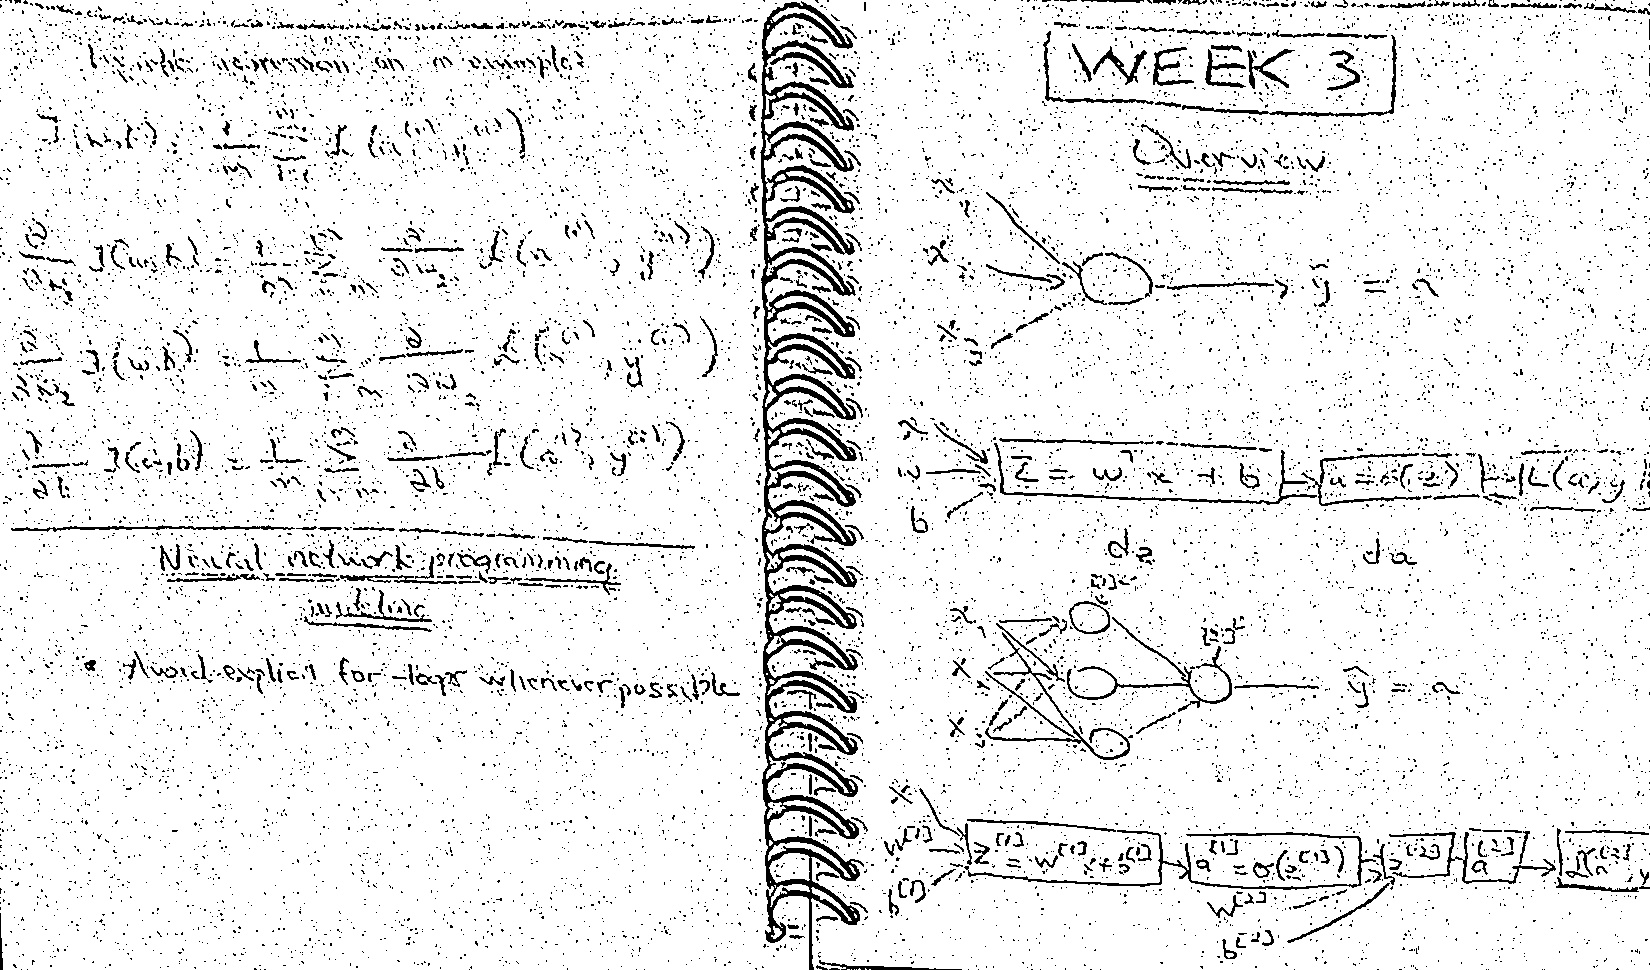 Logistic regression on m examples
J(w,b) = 1/m Σ i=1 m L(a^(i), y^(i))
∂/∂w₁ J(w,b) = 1/m Σ ∂/∂w₁ L(a^(i), y^(i))
∂/∂w₂ J(w,b) = 1/m Σ ∂/∂w₂ L(a^(i), y^(i))
∂/∂b J(w,b) = 1/m Σ ∂/∂b L(a^(i), y^(i))
Neural network programming
guideline
• Avoid explicit for-loops whenever possible
WEEK 3
Overview
x₁
x₂
x₃
ŷ = a
x
w
b
z = wᵀx + b
a = σ(z)
L(a, y
dz
da
[1]
[2]
x₁
x₂
x₃
ŷ = a
x
W^[1]
b^[1]
z^[1] = W^[1]x + b^[1]
a^[1] = σ(z^[1])
z^[2]
a^[2]
L(a^[2], y
W^[2]
b^[2]